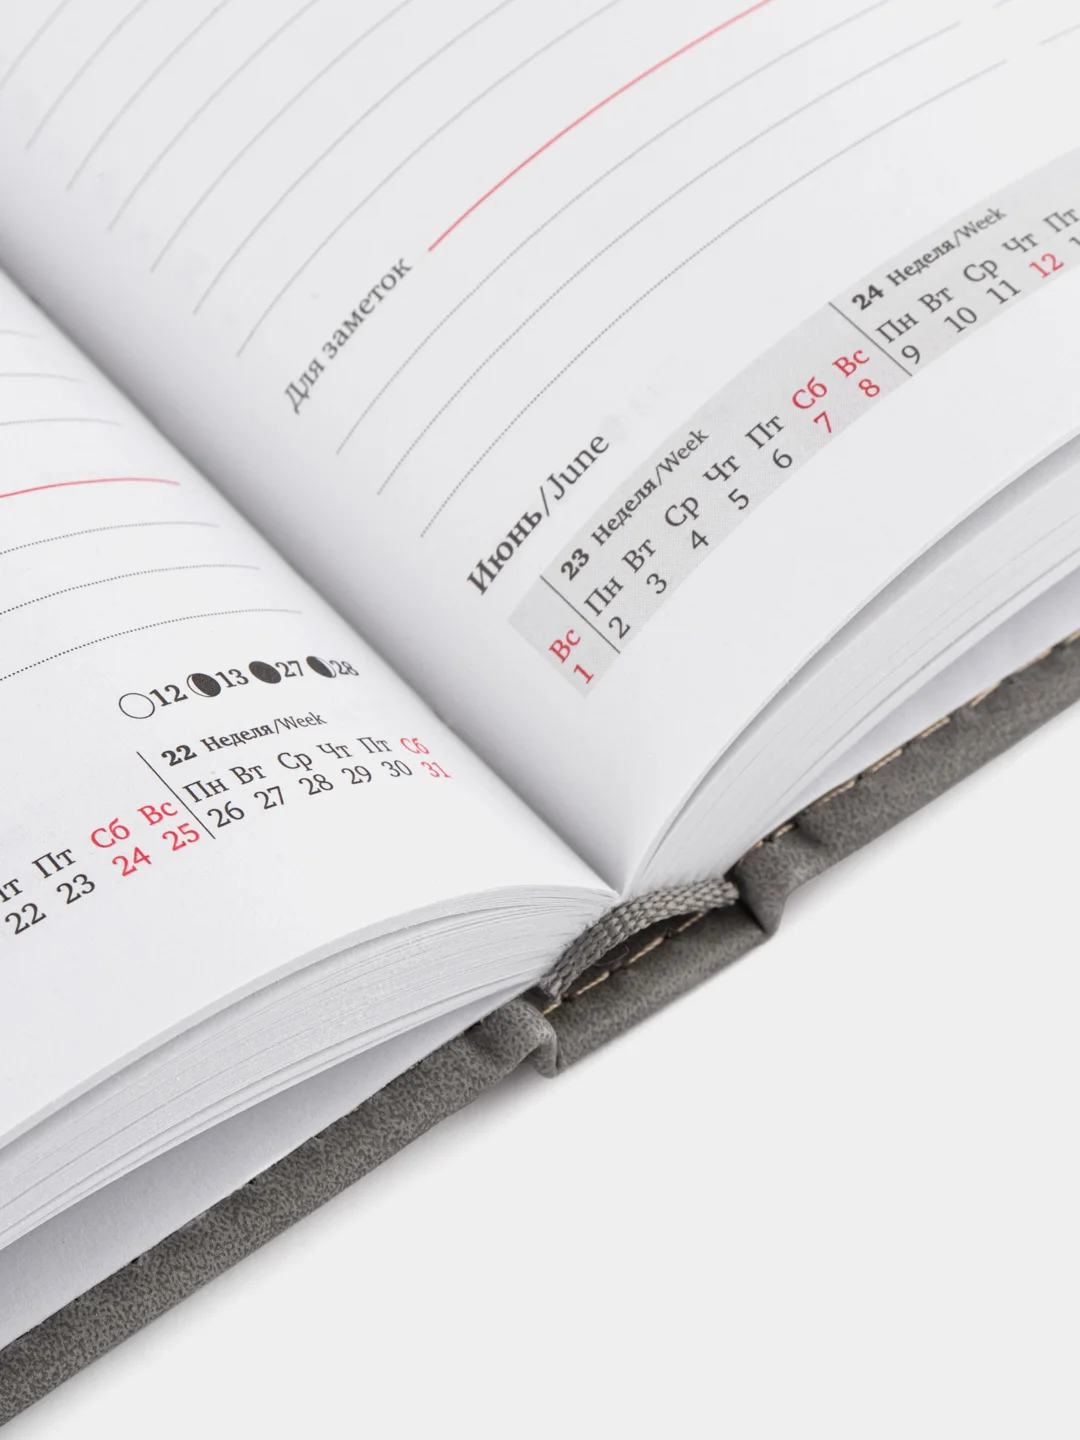 12 13 27 28
22 Неделя/Week
Пт Сб Вс Пн Вт Ср Чт Пт Сб
22 23 24 25 26 27 28 29 30 31
Для заметок
Июнь/June
23 Неделя/Week
24 Неделя/Week
Вс Пн Вт Ср Чт Пт Сб Вс Пн Вт Ср Чт Пт
1 2 3 4 5 6 7 8 9 10 11 12